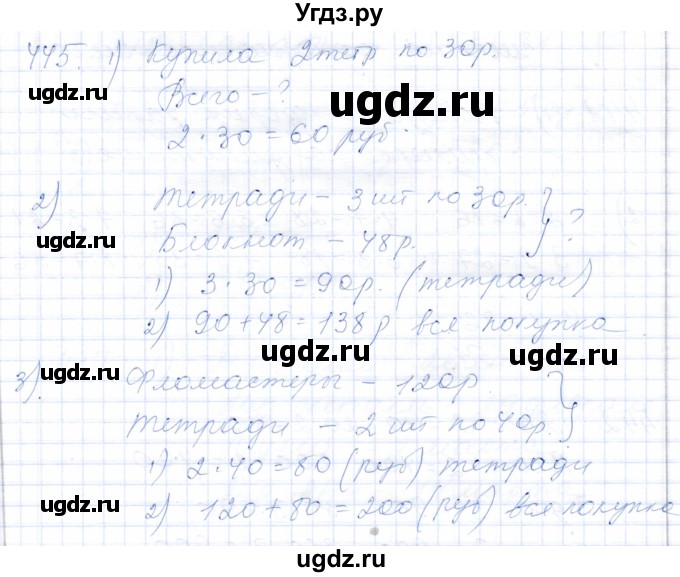 Угдз.ру
445. 1) Купила 2 тетр по 30 р.
Всего - ?
2 · 30 = 60 руб.
2) Тетради - 3 шт по 30 р.
Блокнот - 48 р. } ?
1) 3 · 30 = 90 р. (тетради)
2) 90 + 48 = 138 р вся покупка
3). Фломастеры - 120 р.
Тетради - 2 шт по 40 р. }
1) 2 · 40 = 80 (руб) тетради
2) 120 + 80 = 200 (руб) вся покупка
ugdz.ru
ugdz.ru
ugdz.ru
ugdz.ru
ugdz.ru
ugdz.ru
ugdz.ru
ugdz.ru
ugdz.ru
ugdz.ru
ugdz.ru
ugdz.ru
ugdz.ru